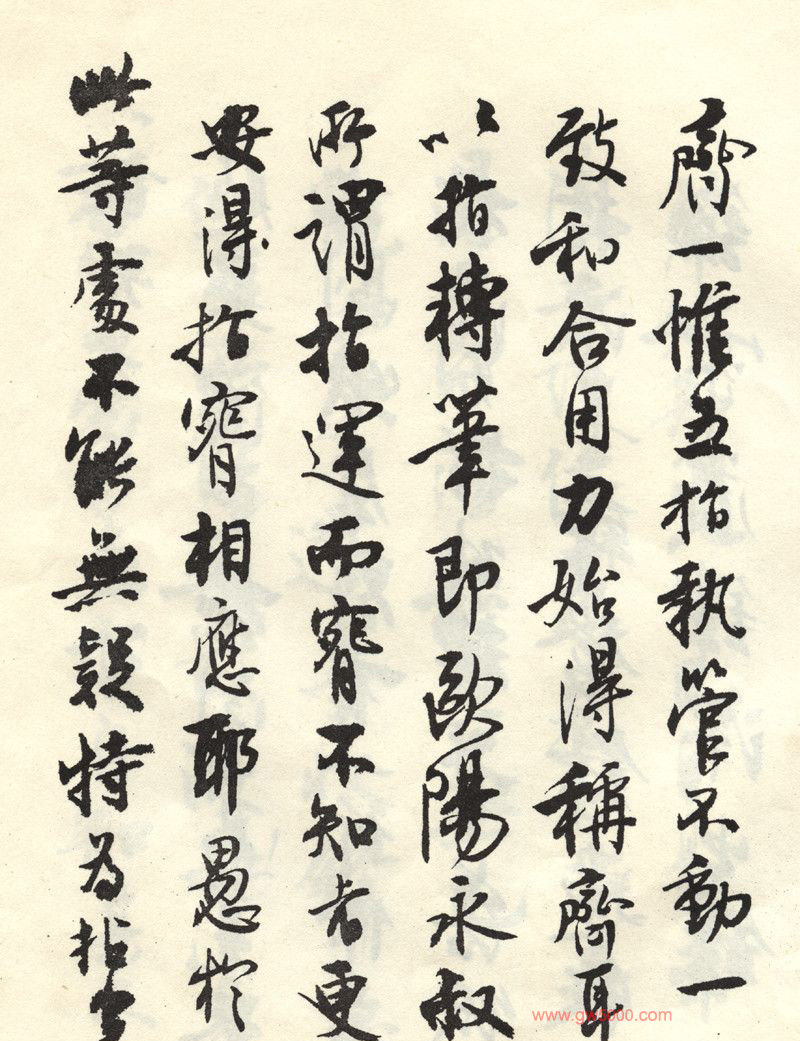 齊一惟五指執管不動一
致和合用力始得稱齊耳
以指轉筆即歐陽永叔
所謂指運而腕不知者更
安得指腕相應耶愚於
此等處不能無疑特為指出
www.gw5000.com